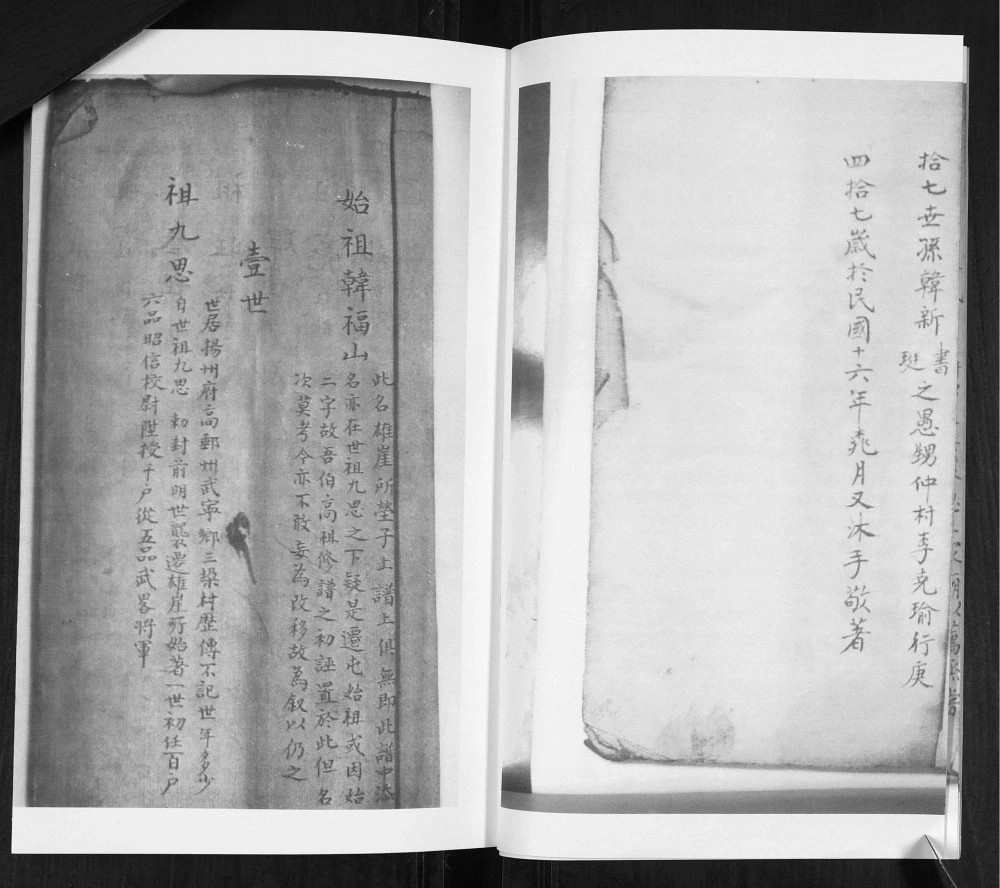 拾七世孫韓新書
珽之愚甥仲村李克瑜行庚
四拾七歲於民國十六年桃月又沐手敬著
始祖韓福山
此名雄崖所塋子上譜上俱無即此譜中添
名亦在世祖九思之下疑是遷屯始祖或因始
二字故吾伯高祖修譜之初誣置於此但名
次莫考今亦不敢妄為改移故為叙以仍之
壹世
祖九思
世居揚州府高郵州武寧鄉三槑村歷傳不記世年多少
自世祖九思 初封前明世襲遷雄崖所始著一世初任百戶
六品昭信校尉陞授千戶從五品武畧將軍